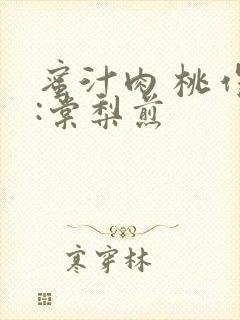 蜜汁肉 桃
:棠梨煎
寒穿林